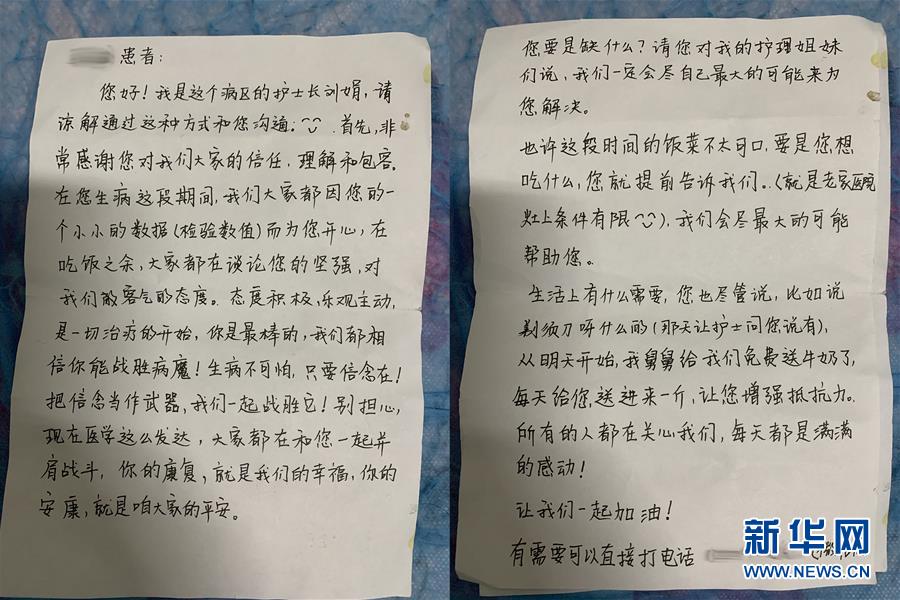 患者：
您好！我是这个病区的护士长刘娟，请
谅解通过这种方式和您沟通。首先，非
常感谢您对我们大家的信任、理解和包容。
在您生病这段期间，我们大家都因您的一
个小小的数据（检验数值）而为您开心，在
吃饭之余，大家都在谈论您的坚强，对
我们的客气的态度。态度积极，乐观主动，
是一切治疗的开始，你是最棒的，我们都相
信你能战胜病魔！生病不可怕，只要信念在！
把信念当作武器，我们一起战胜它！别担心，
现在医学这么发达，大家都在和您一起并
肩战斗，你的康复、就是我们的幸福，你的
安康，就是咱大家的平安。
您要是缺什么？请您对我的护理姐妹
们说，我们一定会尽自己最大的可能来为
您解决。
也许这段时间的饭菜不太可口，要是您想
吃什么，您就提前告诉我们。（就是老家医院
灶上条件有限），我们会尽最大的可能
帮助您。
生活上有什么需要，您也尽管说，比如说
剃须刀呀什么的（那天让护士问您说有），
从明天开始，我舅舅给我们免费送牛奶了，
每天给您送进来一斤，让您增强抵抗力。
所有的人都在关心我们，每天都是满满
的感动！
让我们一起加油！
有需要可以直接打电话
新华网
WWW.NEWS.CN